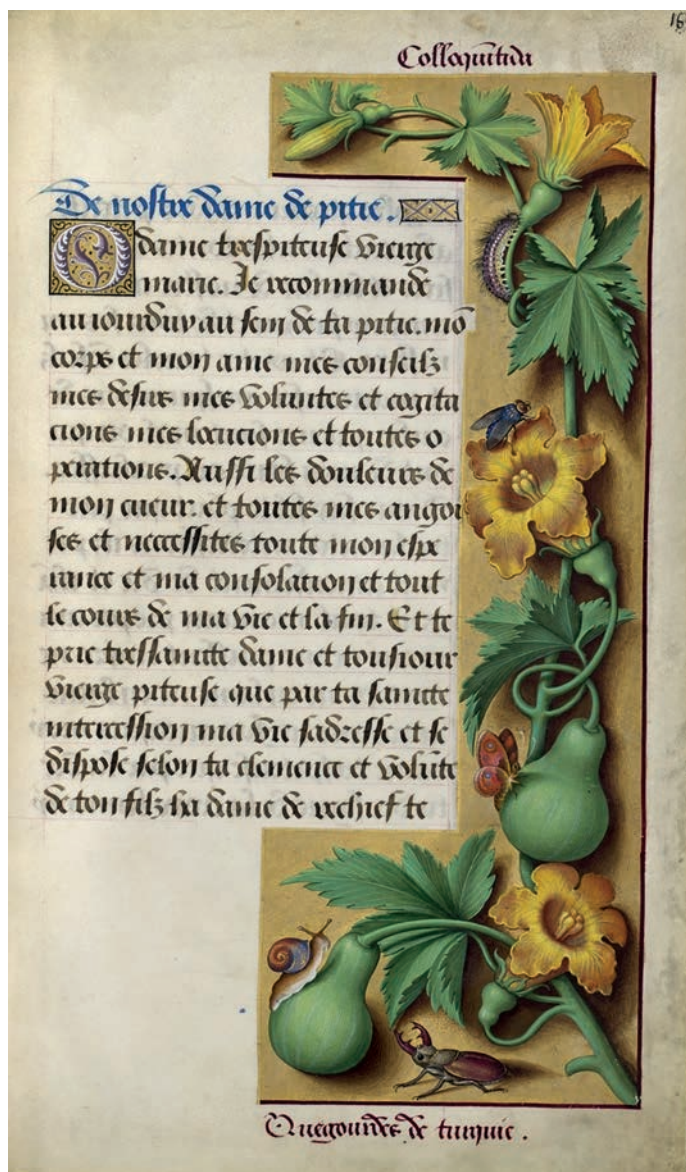 16
Colloquītida
De nostre dame de pitie.
O dame trespiteuse vierge
marie. Je recommande
au iourduy au sein de ta pitie. mō
corps et mon ame mes conseilz
mes desirs mes voluntes et cogita
cions mes locucions et toutes o
perations. Aussi les douleurs de
mon cueur. et toutes mes angoi
ses et necessites toute mon espe
rance et ma consolacion et tout
le cours de ma vie et la fin. Et te
prie tressaincte dame et tousiour
vierge piteuse que par ta saincte
intercession ma vie sadresse et se
dispose selon ta clemence et volūte
de ton filz ha dame de rechief te
Quegourdes de turquie.